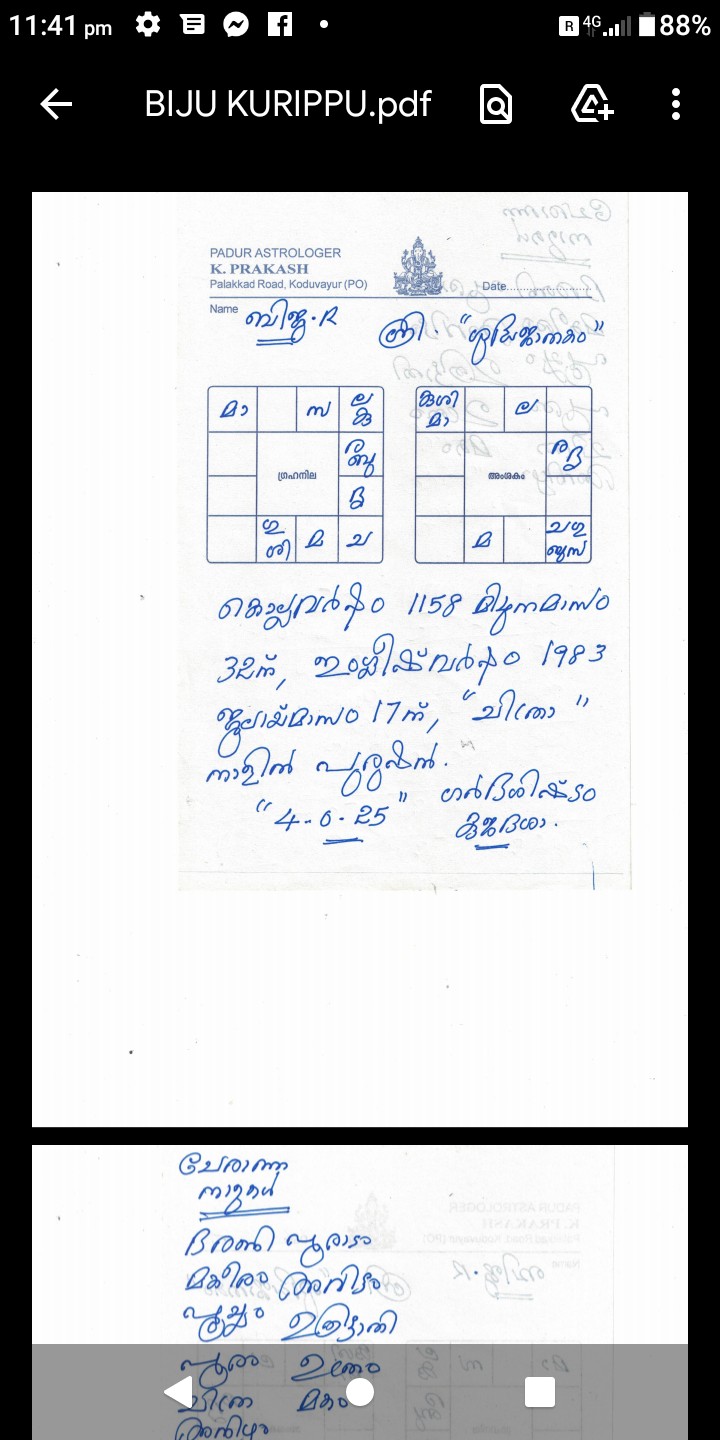 11:41 pm
R 4G 88%
BIJU KURIPPU.pdf
PADUR ASTROLOGER
K. PRAKASH
Palakkad Road, Koduvayur (PO)
Date
Name ബിജു. R
ശ്രീ. "ശുദ്ധജാതകം"
മാ സ ല കു
ര ബു
ഗ്രഹനില
ശി മ ച
കു ശി മാ ല
അംശകം
മ
കൊല്ലവർഷം 1158 മിഥുനമാസം
32ന്, ഇംഗ്ലീഷ് വർഷം 1983
ജൂലായ്മാസം 17ന്, "ചിത്രാ"
നാളിൽ പുരുഷൻ.
"4-0-25" ഗർഭശിഷ്ടം
കുജദശാ.
ചേരാത്ത
നാളുകൾ
ഭരണി പൂരാടം
മകീരം അവിട്ടം
പൂയ്യം ഉത്രട്ടാതി
പൂരം ഉത്രം
ചിത്ര മകം
അനിഴം